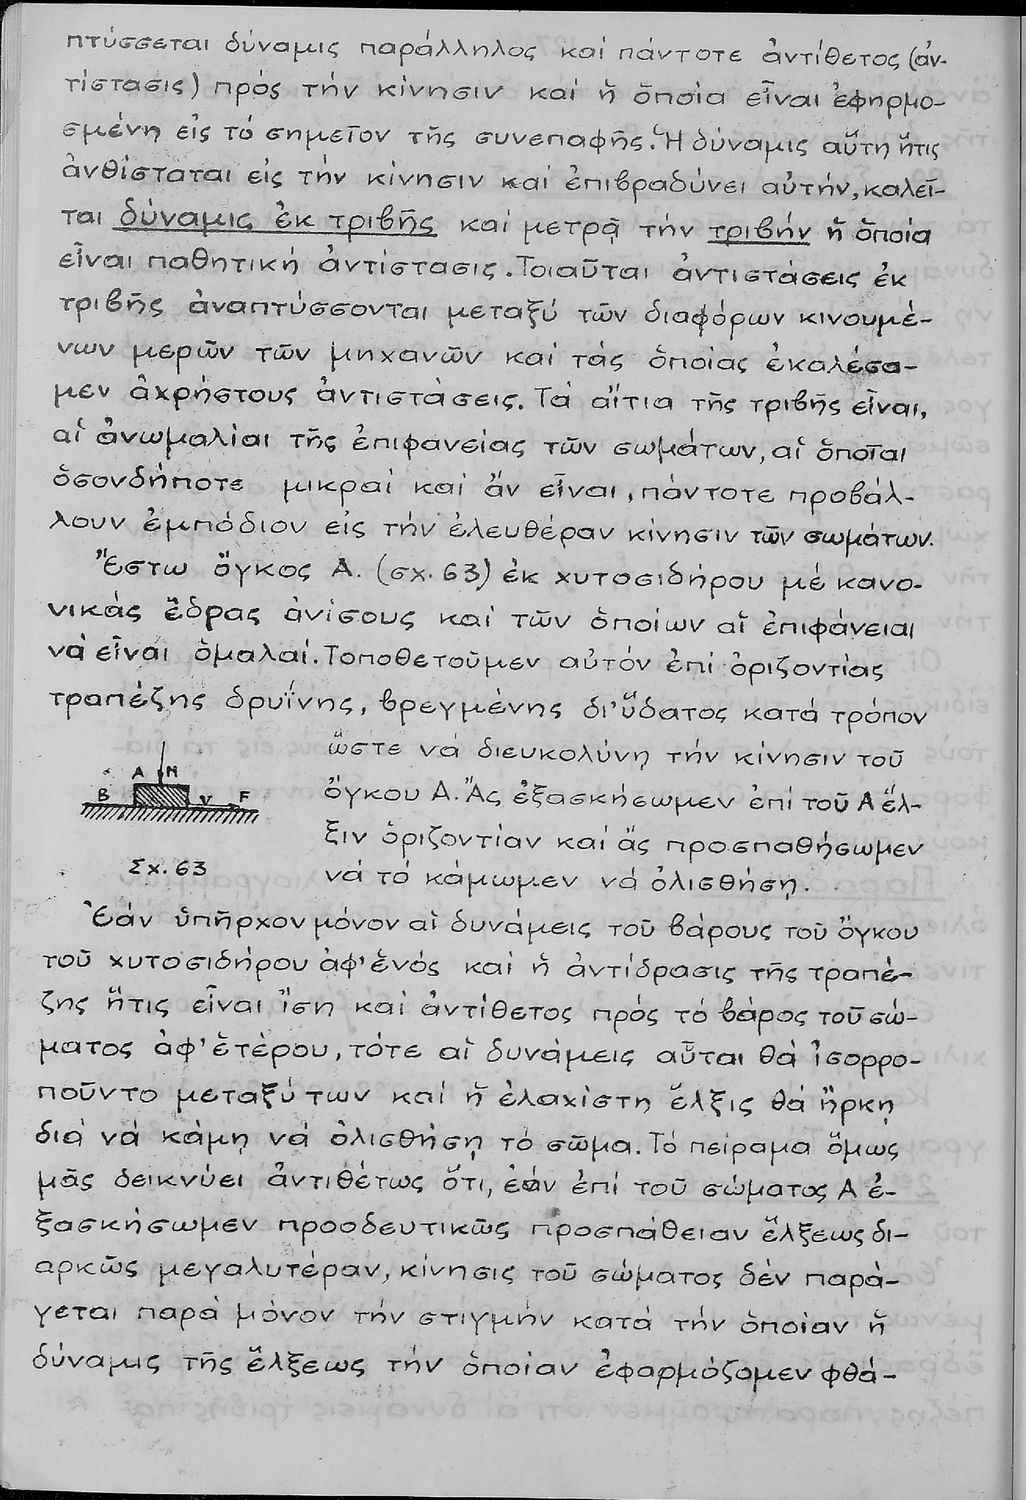 πτύσσεται δύναμις παράλληλος καί πάντοτε ἀντίθετος (ἀν-
τίστασις) πρός τήν κίνησιν καί ἥ ὁποία εἶναι ἐφηρμο-
σμένη εἰς τό σημεῖον τῆς συνεπαφῆς. Ἡ δύναμις αὕτη ἥτις
ἀνθίσταται εἰς τήν κίνησιν καί ἐπιβραδύνει αὐτήν, καλεῖ-
ται δύναμις ἐκ τριβῆς καί μετρᾷ τήν τριβήν ἥ ὁποία
εἶναι παθητική ἀντίστασις. Τοιαῦται ἀντιστάσεις ἐκ
τριβῆς ἀναπτύσσονται μεταξύ τῶν διαφόρων κινουμέ-
νων μερῶν τῶν μηχανῶν καί τάς ὁποίας ἐκαλέσα-
μεν ἀχρήστους ἀντιστάσεις. Τά αἴτια τῆς τριβῆς εἶναι,
αἱ ἀνωμαλίαι τῆς ἐπιφανείας τῶν σωμάτων, αἱ ὁποῖαι
ὁσονδήποτε μικραί καί ἄν εἶναι, πάντοτε προβάλ-
λουν ἐμπόδιον εἰς τήν ἐλευθέραν κίνησιν τῶν σωμάτων.
Ἔστω ὄγκος Α. (σχ. 63) ἐκ χυτοσιδήρου μέ κανο-
νικάς ἕδρας ἀνίσους καί τῶν ὁποίων αἱ ἐπιφάνειαι
νά εἶναι ὁμαλαί. Τοποθετοῦμεν αὐτόν ἐπί ὁριζοντίας
τραπέζης δρυΐνης, βρεγμένης δι' ὕδατος κατά τρόπον
ὥστε νά διευκολύνῃ τήν κίνησιν τοῦ
ὄγκου Α. Ἄς ἐξασκήσωμεν ἐπί τοῦ Α ἕλ-
ξιν ὁριζοντίαν καί ἄς προσπαθήσωμεν
νά τό κάμωμεν νά ὀλισθήσῃ.
Α Ν
Β V F
Σχ. 63
Ἐάν ὑπῆρχον μόνον αἱ δυνάμεις τοῦ βάρους τοῦ ὄγκου
τοῦ χυτοσιδήρου ἀφ' ἑνός καί ἡ ἀντίδρασις τῆς τραπέ-
ζης ἥτις εἶναι ἴση καί ἀντίθετος πρός τό βάρος τοῦ σώ-
ματος ἀφ' ἑτέρου, τότε αἱ δυνάμεις αὗται θά ἰσορρο-
ποῦντο μεταξύ των καί ἡ ἐλαχίστη ἕλξις θά ἤρκῃ
διά νά κάμῃ νά ὀλισθήσῃ τό σῶμα. Τό πείραμα ὅμως
μᾶς δεικνύει ἀντιθέτως ὅτι, ἐάν ἐπί τοῦ σώματος Α ἐ-
ξασκήσωμεν προοδευτικῶς προσπάθειαν ἕλξεως δι-
αρκῶς μεγαλυτέραν, κίνησις τοῦ σώματος δέν παρά-
γεται παρά μόνον τήν στιγμήν κατά τήν ὁποίαν ἡ
δύναμις τῆς ἕλξεως τήν ὁποίαν ἐφαρμόζομεν φθά-